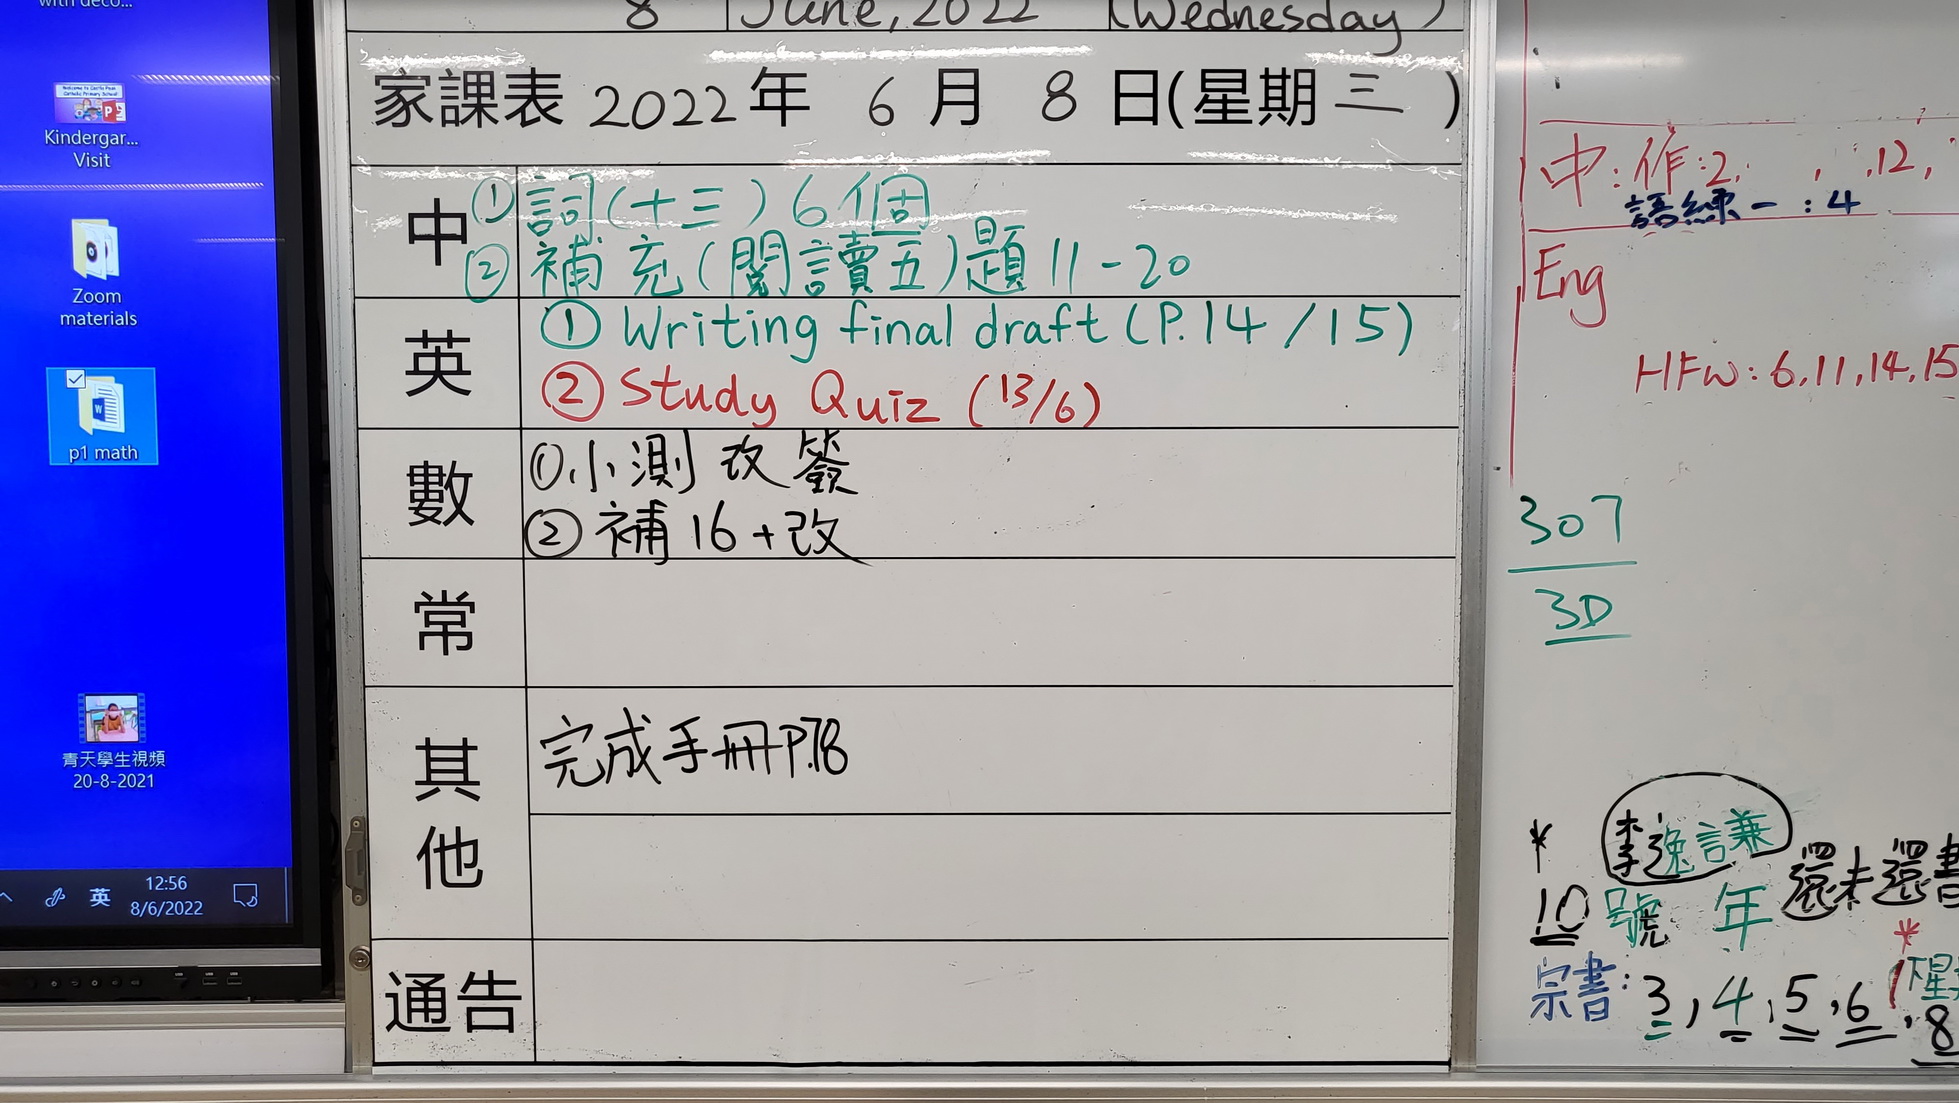 with deco...
Kindergar...
Visit
Zoom
materials
p1 math
青天學生視頻
20-8-2021
英
12:56
8/6/2022
8 June, 2022 (Wednesday)
家課表 2022 年 6 月 8 日(星期 三 )
中
① 詞(十三)6個
② 補充(閱讀五)題11-20
英
① Writing final draft (P.14/15)
② Study Quiz (13/6)
數
① 小測改簽
② 補16+改
常
其他
完成手冊P.78
通告
中:作:2, , ,12,
語練一:4
Eng
HFW: 6,11,14,15
307
3D
* 李逸謙
10號 年 還未還書
*
宗書: 3, 4, 5, 6, 8
下星